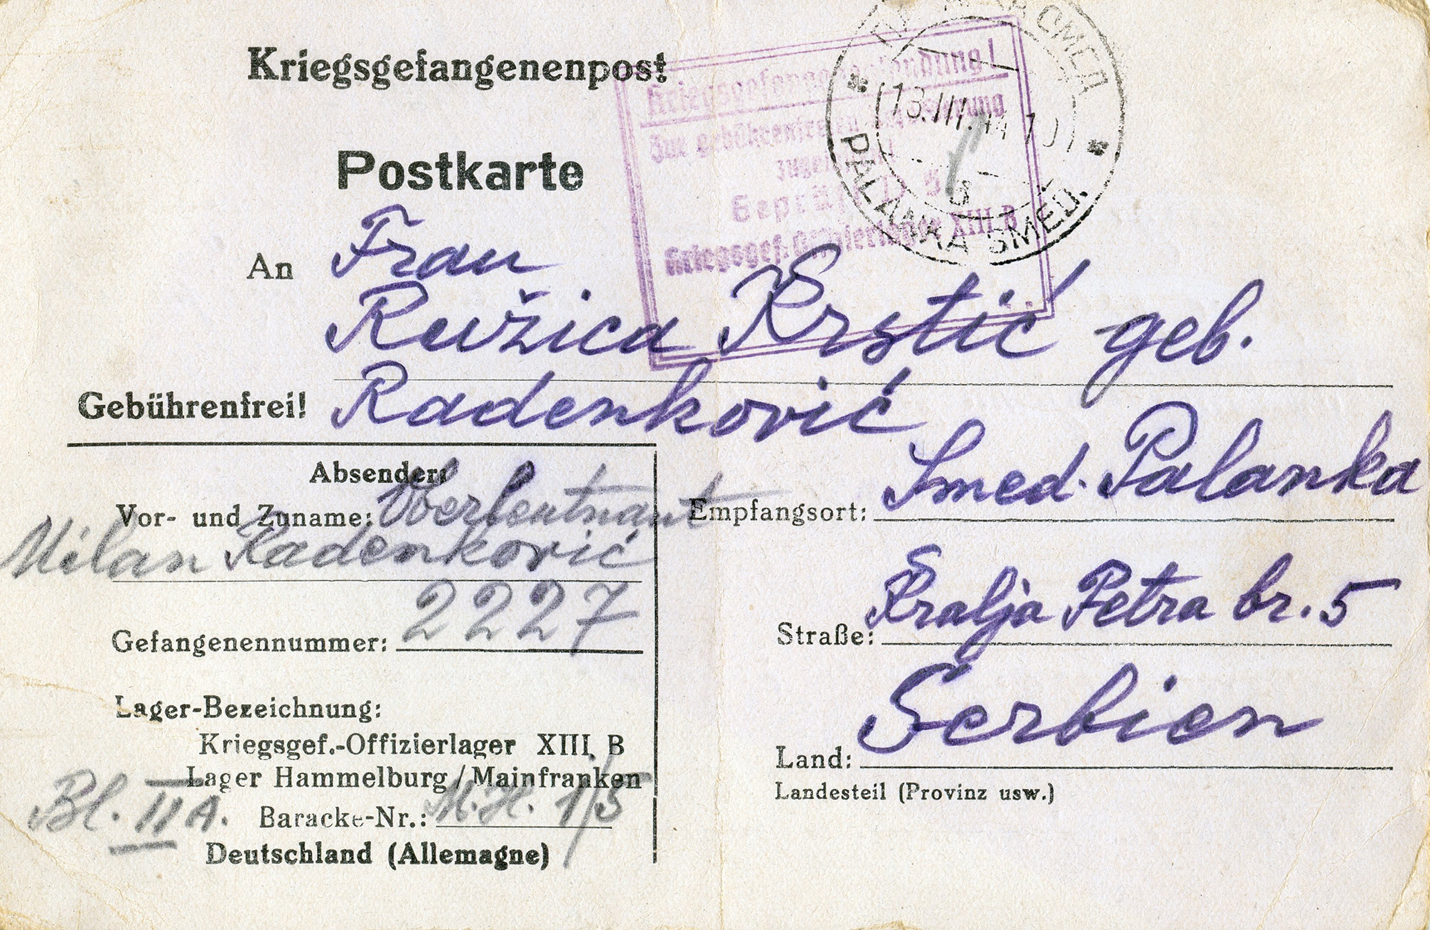 Kriegsgefangenenpost
Postkarte
Kriegsgefangenensendung!
Zur gebührenfreien Beförderung
zugelassen!
Geprüft
Kriegsgef. Offizierlager XIII B
13.III.44
PALANKA SMED.
An Frau
Ružica Krstić geb.
Gebührenfrei! Radenković
Absender:
Vor- und Zuname: Oberleutnant
Milan Radenković
Gefangenennummer: 2227
Lager-Bezeichnung:
Kriegsgef.-Offizierlager XIII B
Lager Hammelburg/Mainfranken
Bl. II A. Baracke-Nr.: 1/5
Deutschland (Allemagne)
Empfangsort: Smed. Palanka
Straße: Kralja Petra br. 5
Land: Serbien
Landesteil (Provinz usw.)